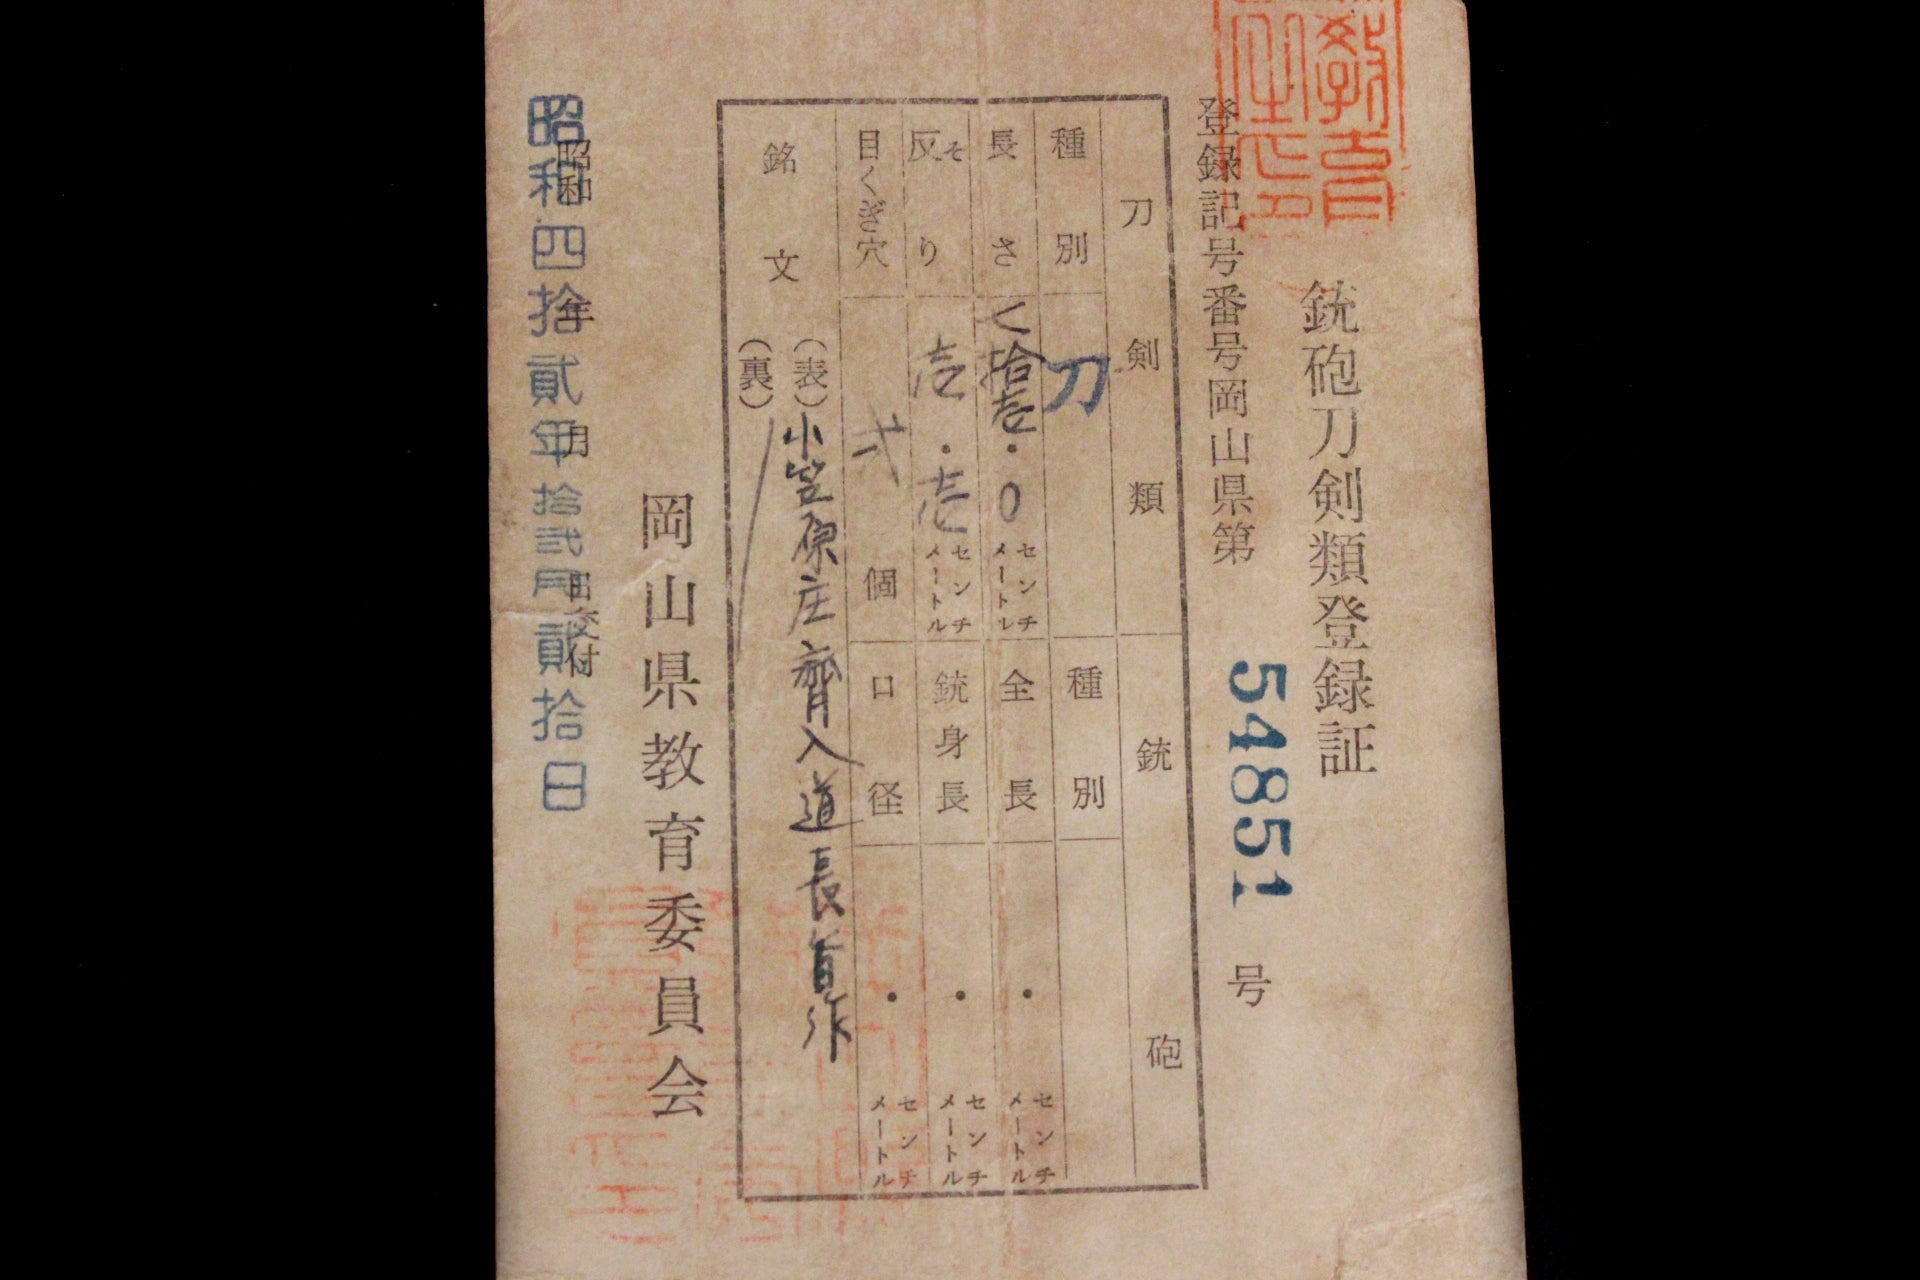 銃砲刀剣類登録証
登録記号番号岡山県第 54851 号
刀剣類
銃砲
種別
刀
種別
長さ
拾壱・0
センチメートル
全長
・
センチメートル
反り
そ
壱・壱
センチメートル
銃身長
・
センチメートル
目くぎ穴
弐
個
口径
・
センチメートル
銘文
(表)小笠原庄齊入道長旨作
(裏)
岡山県教育委員会
昭和 年 月 日交付
昭和四拾貳年拾弐月貳拾日